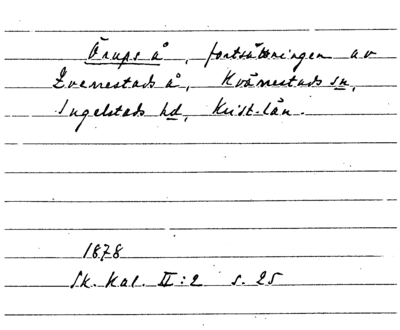 Örups å, fortsättningen av
Zvenestads å, Kvärrestads sn,
Ingelstads hd, Krist-län.
1878
Sk. Kal. II:2 s. 25